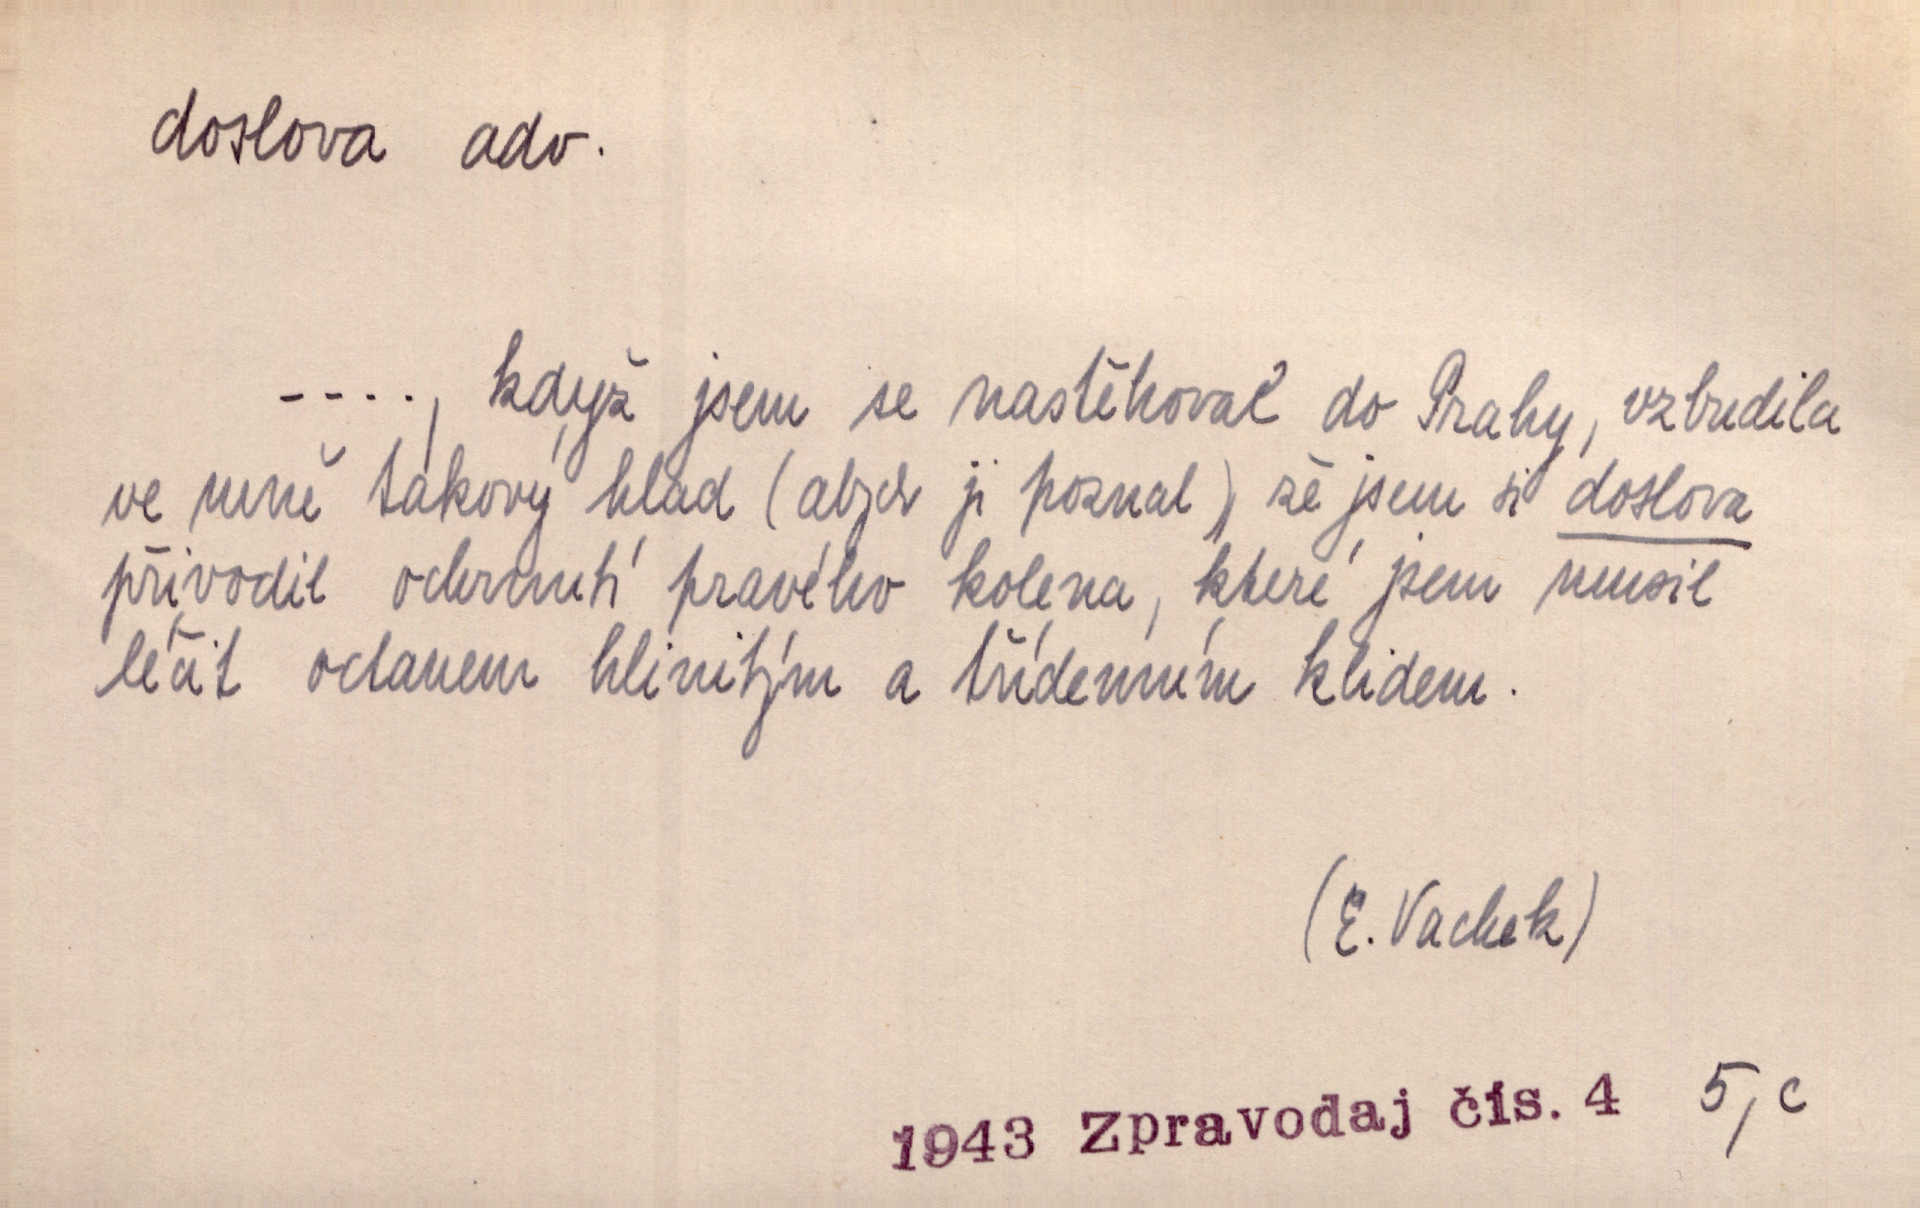 doslova adv.
----, když jsem se nastěhoval do Prahy, vzbudila
ve mně takový hlad (abych ji poznal), že jsem si doslova
přivodil ochrnutí pravého kolena, které jsem musil
léčit octanem hlinitým a třídenním klidem.
(E. Vachek)
1943 Zpravodaj čís. 4 5, c